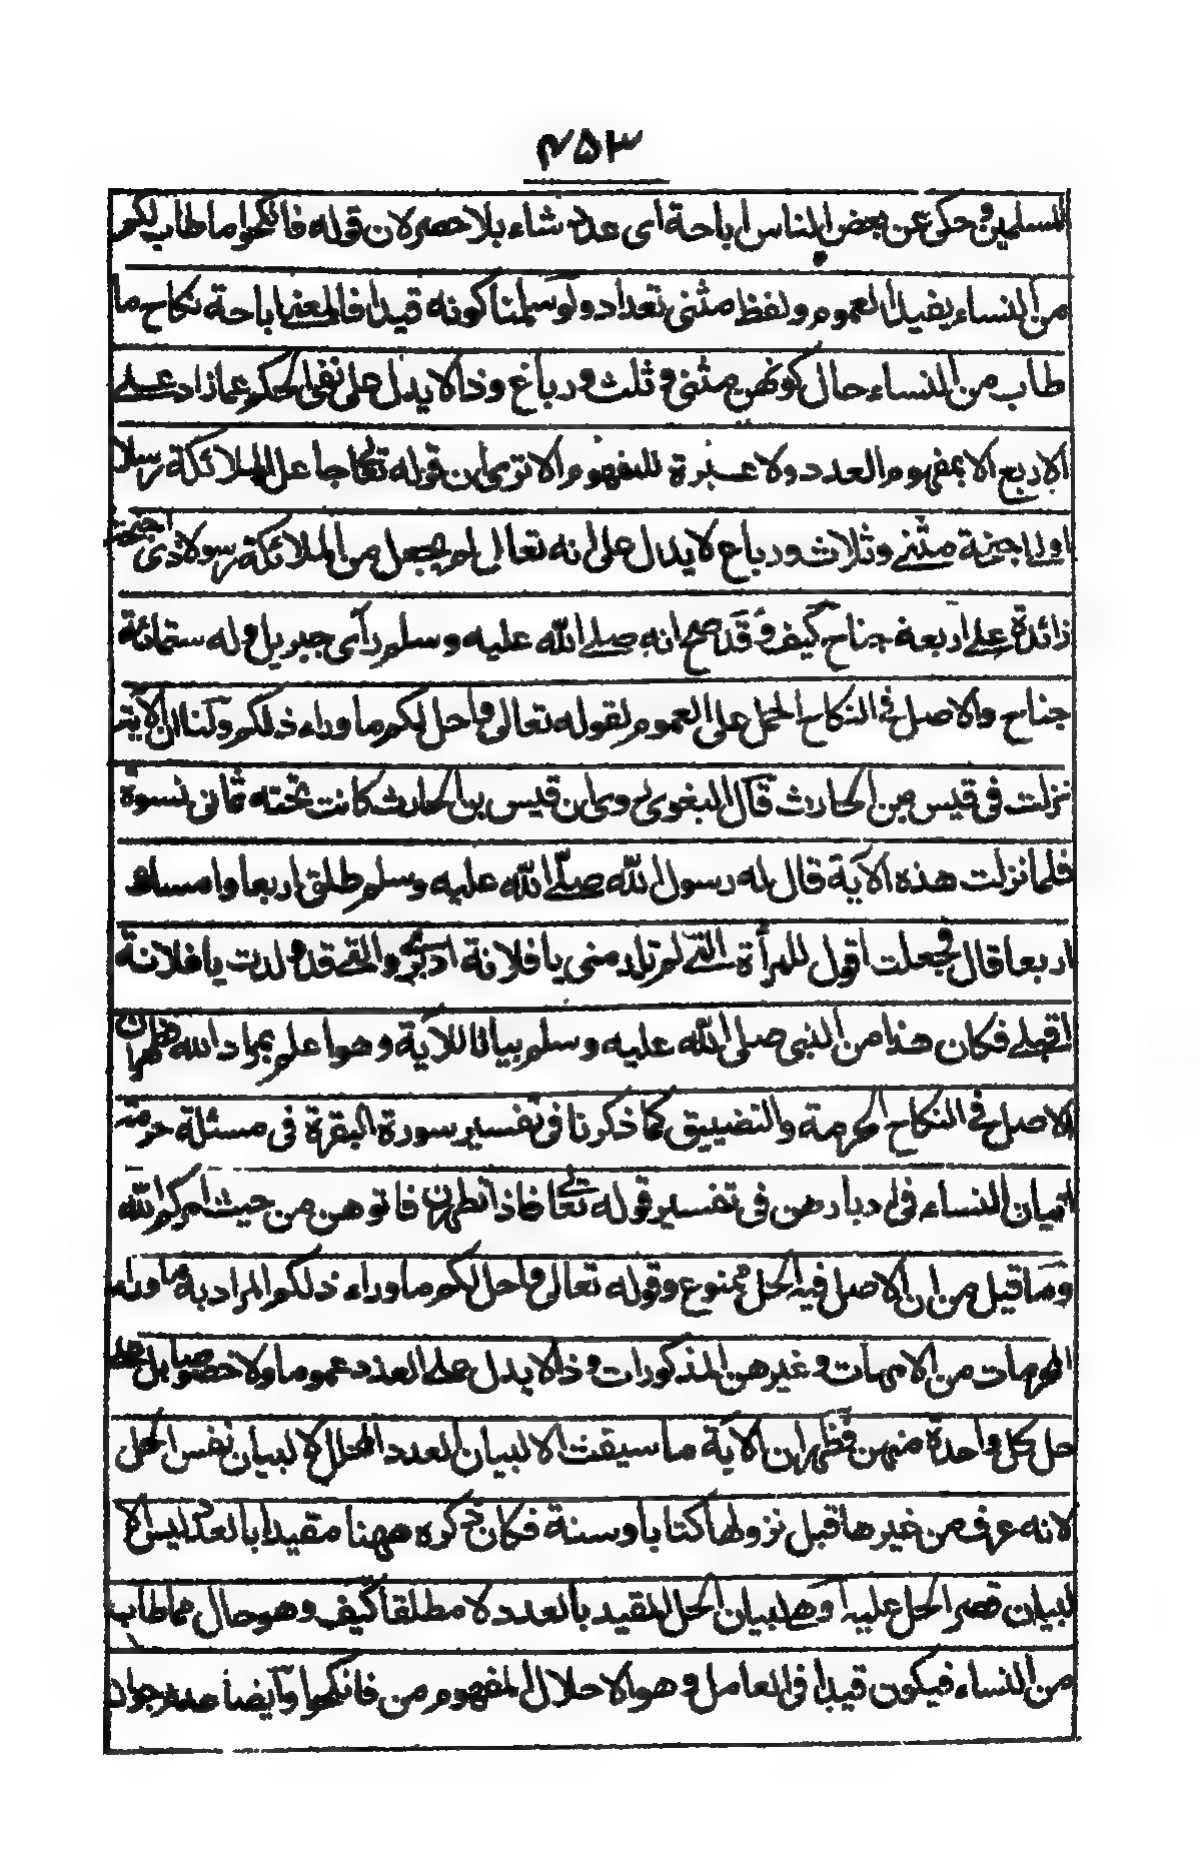 ۴۵۳
المسلمين وحكى عن بعض الناس اباحة اى عدد شاء بلا حصر لان قوله فانكحوا ما طاب لكم
من النساء يفيد العموم ولفظ مثنى تعداد ولو سلمنا كونه قيدا فالمعنى اباحة نكاح ما
طاب من النساء حال كونهن مثنى وثلث ورباع وذا لا يدل على نفى الحكم عما زاد على
الاربع الا بمفهوم العدد ولا عبرة للمفهوم الا ترى ان قوله تعالى جاعل الملائكة رسلا
اولى اجنحة مثنى وثلاث ورباع لا يدل على انه تعالى لم يجعل من الملائكة رسولا ذى اجنحة
زائدة على اربعة جناح كيف وقد صح انه صلى الله عليه وسلم رأى جبريل وله ستمائة
جناح والاصل فى النكاح الحمل على العموم لقوله تعالى واحل لكم ما وراء ذلكم ولنا ان الآية
نزلت فى قيس بن الحارث قال البغوى روى ان قيس بن الحارث كانت تحته ثمانى نسوة
فلما نزلت هذه الآية قال له رسول الله صلى الله عليه وسلم طلق اربعا وامسك
اربعا قال فجعلت اقول للمرأة التى لم تلد منى يا فلانة ادبرى والتى قد ولدت يا فلانة
اقبلى فكان هذا من النبى صلى الله عليه وسلم بيانا للآية وهو اعلم بمراد الله فظهر ان
الاصل فى النكاح الحرمة والتضييق كما ذكرنا فى تفسير سورة البقرة فى مسئلة حرمة
اتيان النساء فى ادبارهن فى تفسير قوله تعالى فاذا تطهرن فاتوهن من حيث امركم الله
وما قيل من ان الاصل فيه الحل ممنوع وقوله تعالى واحل لكم ما وراء ذلكم المراد به ما وراء
المحرمات من الامهات وغيرهن المذكورات وذا لا يدل على العدد عموما ولا خصوصا بل على
حل كل واحدة منهن فظهر ان الآية ما سيقت الا لبيان العدد المحلل لا لبيان نفس الحل
لانه عرف من غيرها قبل نزولها كتابا وسنة فكان ذكره ههنا مقيدا بالعدد ليس الا
لبيان قصر الحل عليه او هى لبيان الحل المقيد بالعدد لا مطلقا كيف وهو حال مما طاب
من النساء فيكون قيدا فى العامل وهو الاحلال المفهوم من فانكحوا وايضا عدم جواز